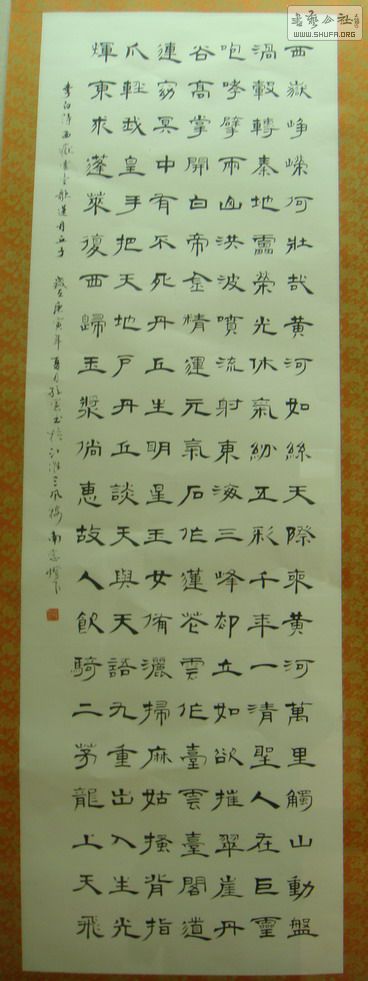 書藝公社
WWW.SHUFA.ORG
西嶽崢嶸何壯哉黃河如絲天際來黃河萬里觸山動盤
渦轂轉秦地靁榮光休氣紛五彩千年一清聖人在巨靈
咆哮擘兩山洪波噴流射東海三峰却立如欲摧翠崖丹
谷高掌開白帝金精運元氣石作蓮花雲作臺雲臺閣道
連窈冥中有不死丹丘生明星玉女備灑掃麻姑搔背指
爪輕我皇手把天地戶丹丘談天與天語九重出入生光
煇東求蓬萊復西歸玉漿倘惠故人飲騎二茅龍上天飛
李白詩西嶽雲臺歌送丹丘子 歲在庚寅年夏月書於江淮三風樓南窗燈下